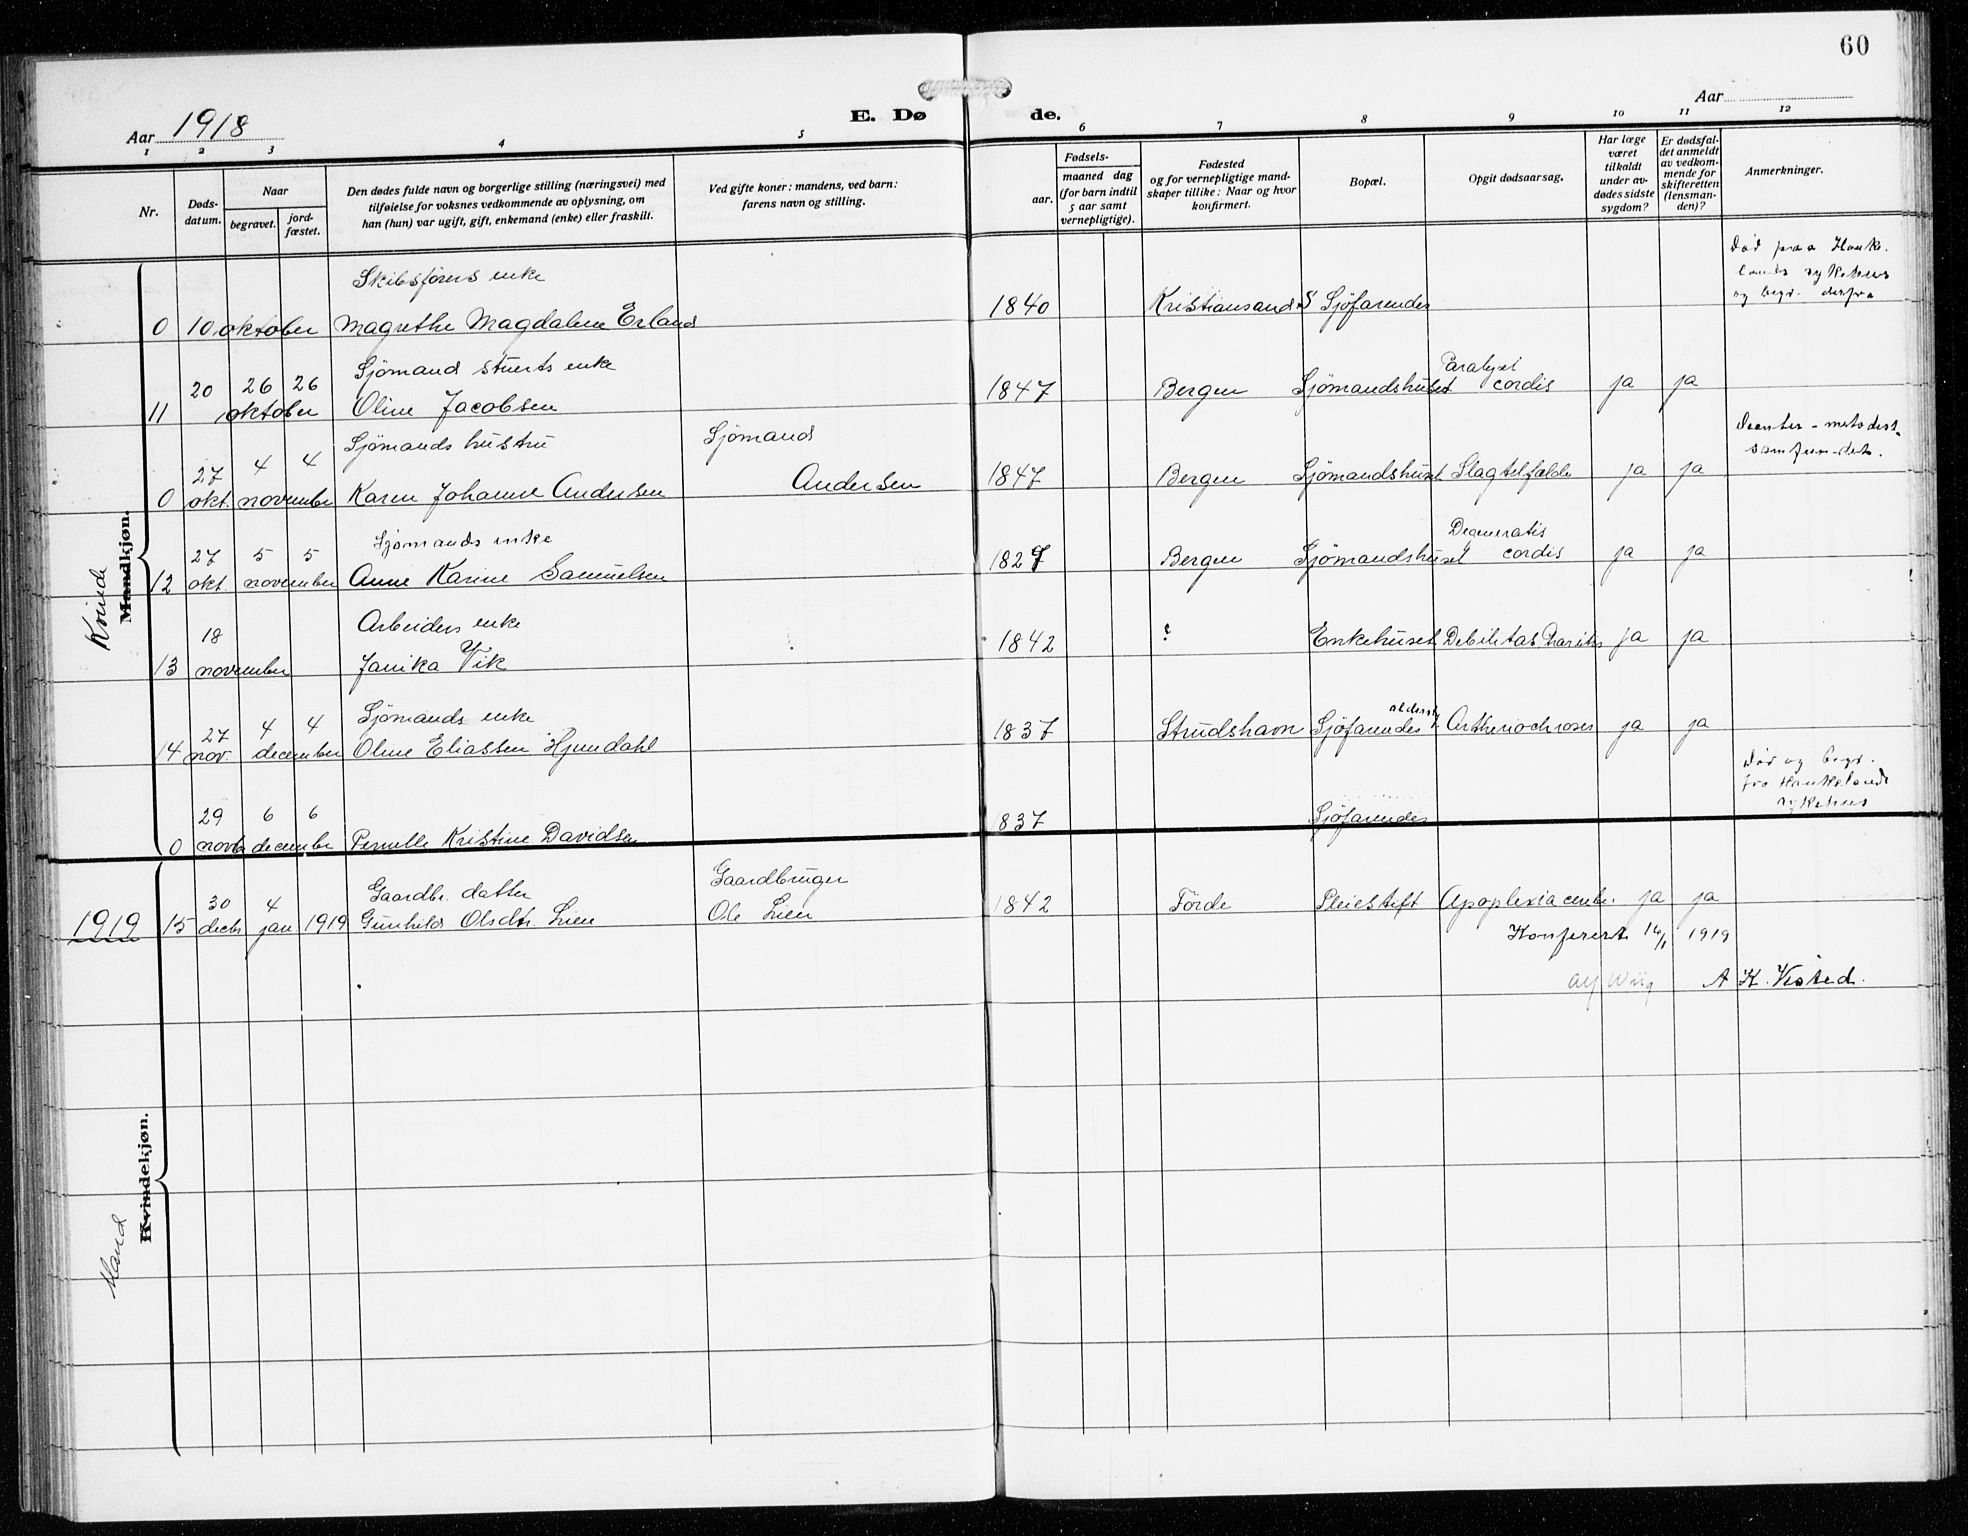 60
Aar 1918
E. Døde.
Aar
1 2 3 4 5 6 7 8 9 10 11 12
Nr.
Døds-
datum.
Naar
begravet.
jord-
fæstet.
Den dødes fulde navn og borgerlige stilling (næringsvei) med
tilføielse for voksnes vedkommende av oplysning, om
han (hun) var ugift, gift, enkemand (enke) eller fraskilt.
Ved gifte koner: mandens, ved barn:
farens navn og stilling.
Fødsels-
aar.
maaned dag
(for barn indtil
5 aar samt
vernepligtige).
Fødested
og for vernepligtige mand-
skaper tillike: Naar og hvor
konfirmert.
Bopæl.
Opgit dødsaarsag.
Har læge
været
tilkaldt
under av-
dødes sidste
sygdom?
Er dødsfal-
det anmeldt
av vedkom-
mende for
skifteretten
(lensman-
den)?
Anmerkninger.
Kvinde
Mandkjøn.
Skibsførers enke
0 10 oktober Magrethe Magdalene Erland 1840 Kristiansand S Sjøfarendes
Død paa Hauke-
lands sykehus
og begr. derfra
Sjömand stuerts enke
11 20 26 26 oktober Oline Jacobsen 1847 Bergen Sjømandshuset Paralysi cordis ja ja
Sjømands hustru Sjømand
0 27 okt. 4 4 november Karen Johanne Andersen Andersen 1847 Bergen Sjømandshuset Slagtilfælde ja ja
metodist-
samfundet.
Sjømands enke
12 27 okt. 5 5 november Anne Karine Samuelsen 1827 Bergen Sjømandshuset Degeneratis cordis ja ja
Arbeiders enke
13 18 november Janika Vik 1842 ? Enkehuset Debilitas ja ja
Sjømands enke
14 27 nov. 4 4 december Oline Eliassen Hjendahl 1837 Strudshavn Sjøfarendes alderst. ja ja
0 29 novb 6 6 december Pernille Kristine Davidsen 1837 Sjøfarendes
Død og begr.
fra Haukelands
sykehus
1919
Gaardbr. datter Gaardbruger
15 30 decbr 4 jan 1919 Gunhild Olsdtr. Lien Ole Lien 1842 Förde Pleiestift Apoplexia cerebr. ja ja
Konferert 14/1 1919
A K.
Mand
Kvindekjøn.